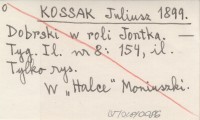 o KOSSAK Juliusz 1899.
Dobrski w roli Jontka. —
Tyg. Il. nr 8: 154, il.
Tylko rys.
W „Halce" Moniuszki.